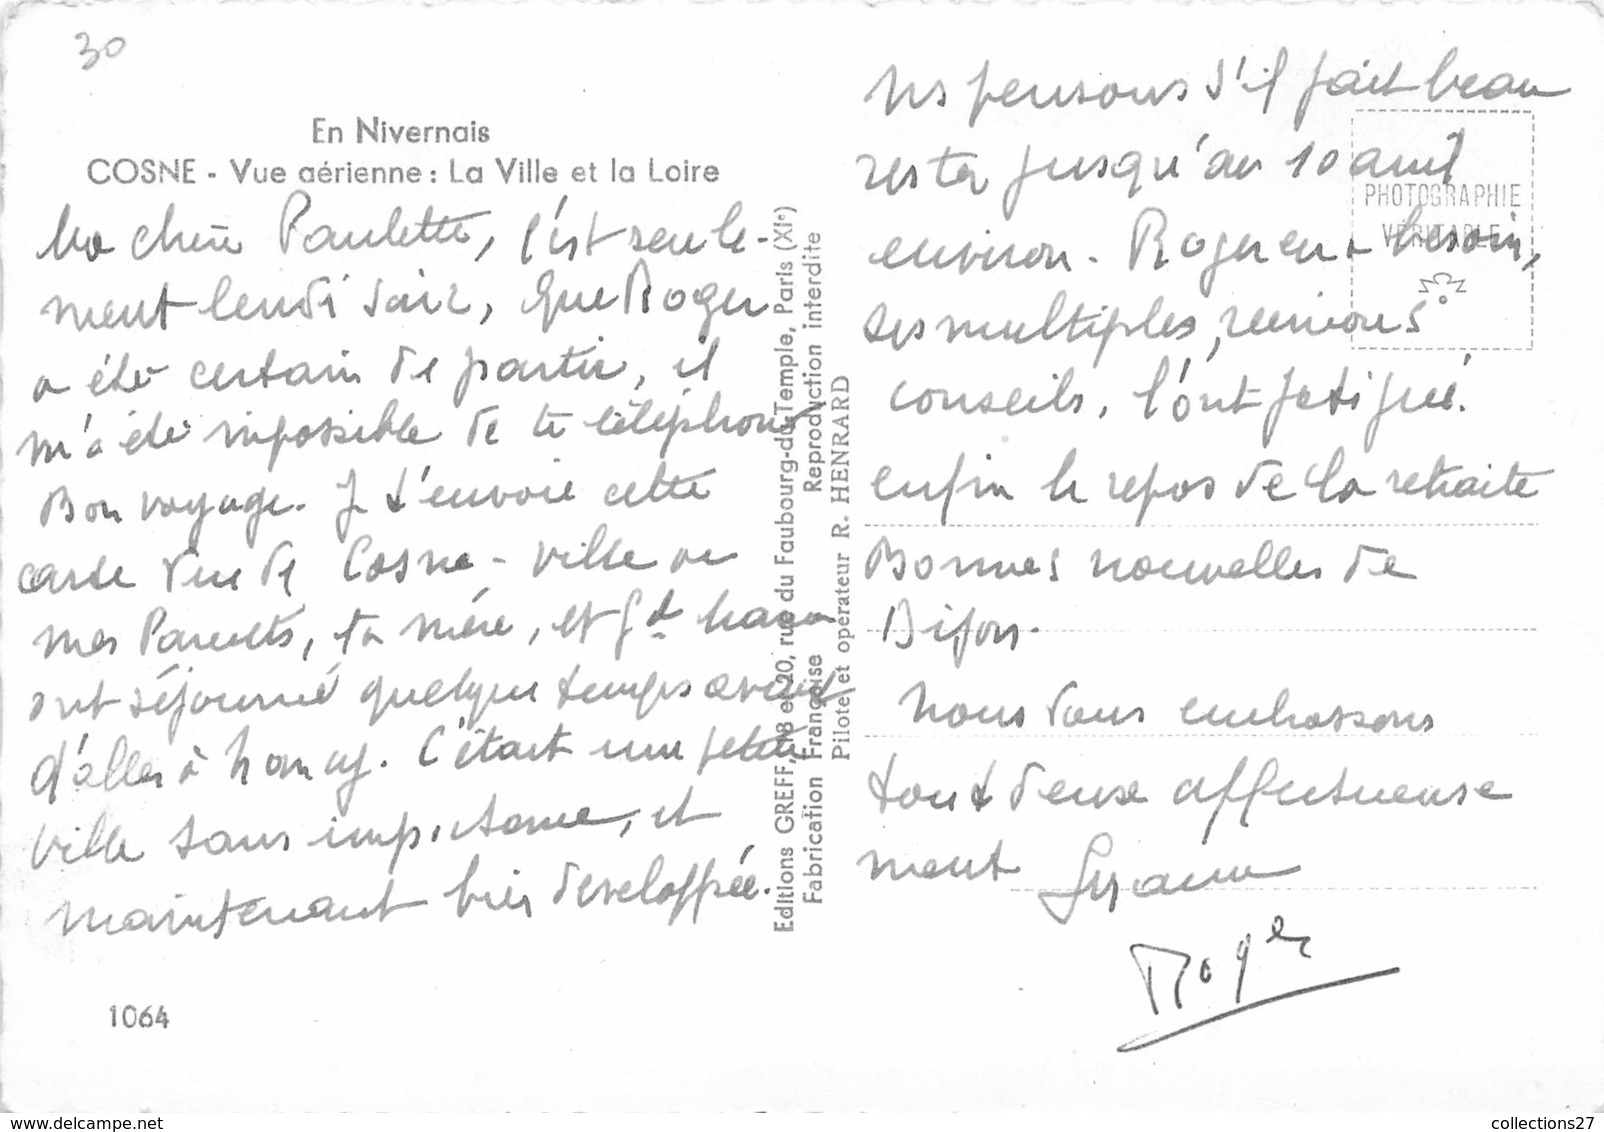 30
En Nivernais
COSNE - Vue aérienne : La Ville et la Loire
Ma chère Paulette, c'est seule-
ment lundi soir, que Roger
a été certain de partir, il
m'a été impossible de te téléphoner
Bon voyage. Je t'envoie cette
carte vue de Cosne - ville ou
mes Parents, ta mére, et Gd maman
ont séjourné quelque temps avant
d'aller à Nancy. C'était une petite
ville sans importance, et
maintenant bien developpée.
1064
Editions GREFF, 18 et 20, rue du Faubourg-du-Temple, Paris (XIe)
Fabrication Française Reproduction interdite
Pilote et opérateur R. HENRARD
PHOTOGRAPHIE
VÉRITABLE
Ns pensons s'il fait beau
rester jusqu'au 10 avril
environ. Roger en a besoin,
ses multiples, reunions
conseils, l'ont fatigué.
enfin le repos de la retraite
Bonnes nouvelles de
Dijon.
Nous vous embrassons
tout deux affectueuse
ment Suzanne
Roger
collections27